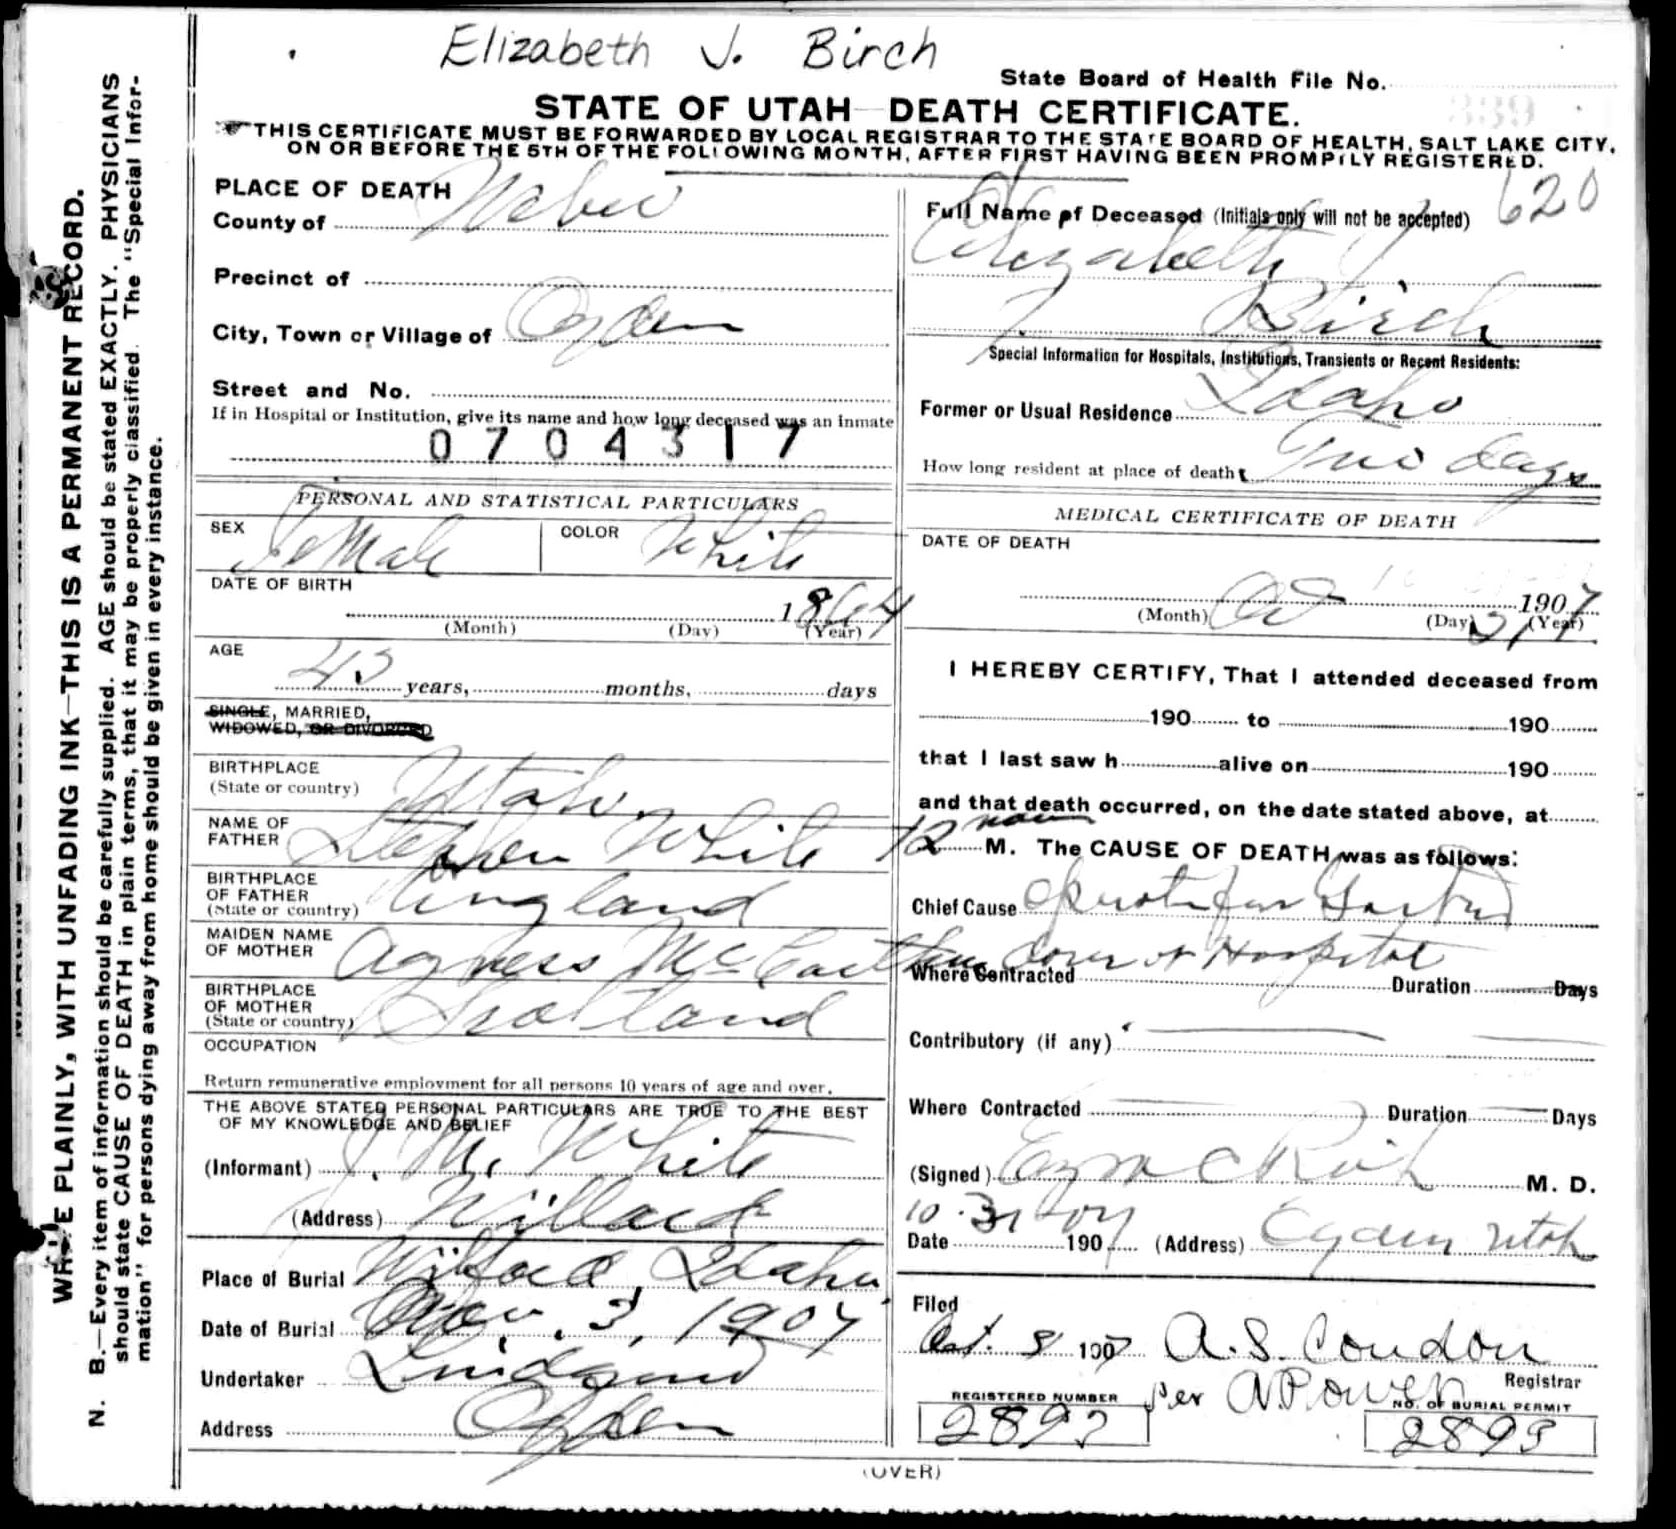 Elizabeth J. Birch
State Board of Health File No.
STATE OF UTAH—DEATH CERTIFICATE.
THIS CERTIFICATE MUST BE FORWARDED BY LOCAL REGISTRAR TO THE STATE BOARD OF HEALTH, SALT LAKE CITY,
ON OR BEFORE THE 5TH OF THE FOLLOWING MONTH, AFTER FIRST HAVING BEEN PROMPTLY REGISTERED.
WRITE PLAINLY, WITH UNFADING INK—THIS IS A PERMANENT RECORD.
N. B.—Every item of information should be carefully supplied. AGE should be stated EXACTLY. PHYSICIANS
should state CAUSE OF DEATH in plain terms, that it may be properly classified. The "Special Infor-
mation" for persons dying away from home should be given in every instance.
PLACE OF DEATH
County of Weber
Precinct of
City, Town or Village of Ogden
Street and No.
If in Hospital or Institution, give its name and how long deceased was an inmate
0704317
PERSONAL AND STATISTICAL PARTICULARS
SEX Female COLOR White
DATE OF BIRTH
1864
(Month) (Day) (Year)
AGE
43 years, months, days
SINGLE, MARRIED,
WIDOWED, OR DIVORCED
BIRTHPLACE
(State or country) Utah.
NAME OF
FATHER Stephen White
BIRTHPLACE
OF FATHER
(State or country) England
MAIDEN NAME
OF MOTHER Agness Mc
BIRTHPLACE
OF MOTHER
(State or country) Scotland
OCCUPATION
Return remunerative employment for all persons 10 years of age and over.
THE ABOVE STATED PERSONAL PARTICULARS ARE TRUE TO THE BEST
OF MY KNOWLEDGE AND BELIEF
(Informant) J. M. White
(Address) Willard
Place of Burial Wilford, Idaho
Date of Burial Nov. 3, 1907
Undertaker Lindquist
Address Ogden
620
Full Name of Deceased (Initials only will not be accepted)
Elizabeth J
Birch
Special Information for Hospitals, Institutions, Transients or Recent Residents:
Former or Usual Residence Idaho
How long resident at place of death Two days
MEDICAL CERTIFICATE OF DEATH
DATE OF DEATH
1907
(Month) Oct (Day) 31 (Year)
I HEREBY CERTIFY, That I attended deceased from
190 to 190
that I last saw h alive on 190
and that death occurred, on the date stated above, at
12 noon M. The CAUSE OF DEATH was as follows:
Chief Cause
Hospital
Where Contracted Duration Days
Contributory (if any)
Where Contracted Duration Days
(Signed) Ezra C Rich M. D.
10-31-07
Date 190 (Address) Ogden Utah
Filed
Oct. 190 A. S. Condon
Registrar
per
REGISTERED NUMBER
2893
NO. OF BURIAL PERMIT
2893
(OVER)